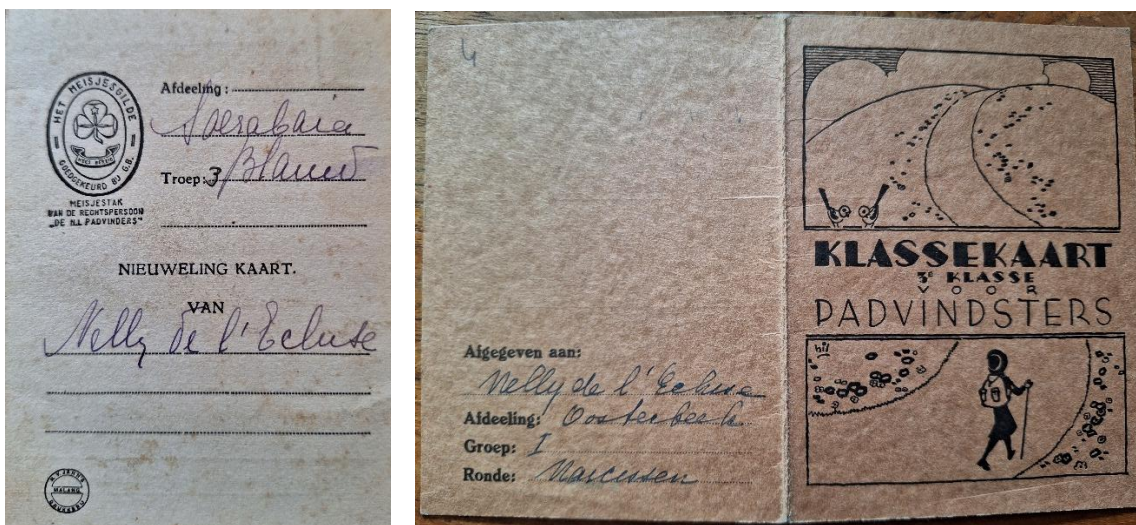 HET MEISJESGILDE
GOEDGEKEURD BIJ G.B.
MEISJESTAK
VAN DE RECHTSPERSOON
"DE N.I. PADVINDERS"
Afdeeling:
Soerabaia
Troep: 3 / Blauw
NIEUWELING KAART.
VAN
Nelly de l'Ecluse
MALANG
4
Afgegeven aan:
Nelly de l'Ecluse
Afdeeling: Oosterbeek
Groep: I
Ronde: Narcissen
KLASSEKAART
3e KLASSE
VOOR
PADVINDSTERS